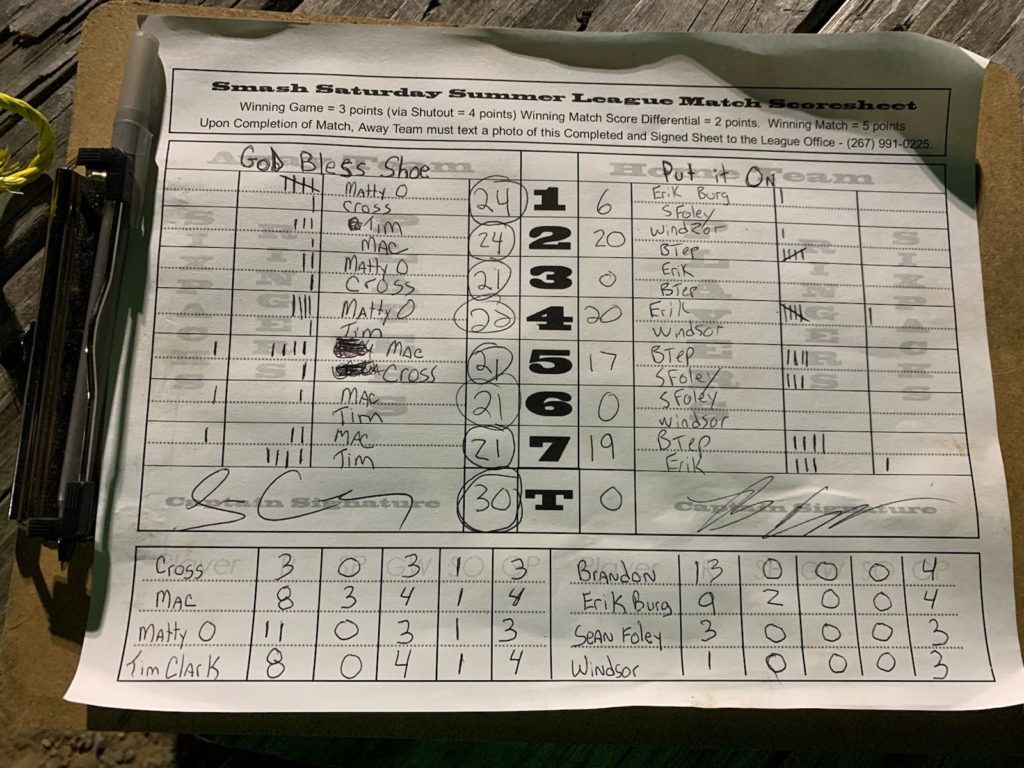 Smash Saturday Summer League Match Scoresheet
Winning Game = 3 points (via Shutout = 4 points) Winning Match Score Differential = 2 points. Winning Match = 5 points
Upon Completion of Match, Away Team must text a photo of this Completed and Signed Sheet to the League Office - (267) 991-0225.
GoD Bless Shoe Put it On
Matty O 24 1 6 Erik Burg
Cross SFoley
Tim 24 2 20 Windzor
MAC BTep
Matty O 21 3 0 Erik
Cross BTep
Matty O 22 4 20 Erik
Tim Windsor
MAC 21 5 17 BTep
Cross SFoley
MAC 21 6 0 SFoley
Tim Windsor
MAC 21 7 19 BTep
Tim Erik
Captain Signature 30 T 0 Captain Signature
Cross 3 0 3 1 3 BRANDON 13 0 0 0 4
MAC 8 3 4 1 4 Erik Burg 9 2 0 0 4
Matty O 11 0 3 1 3 SEAN Foley 3 0 0 0 3
Tim Clark 8 0 4 1 4 Windsor 1 0 0 0 3